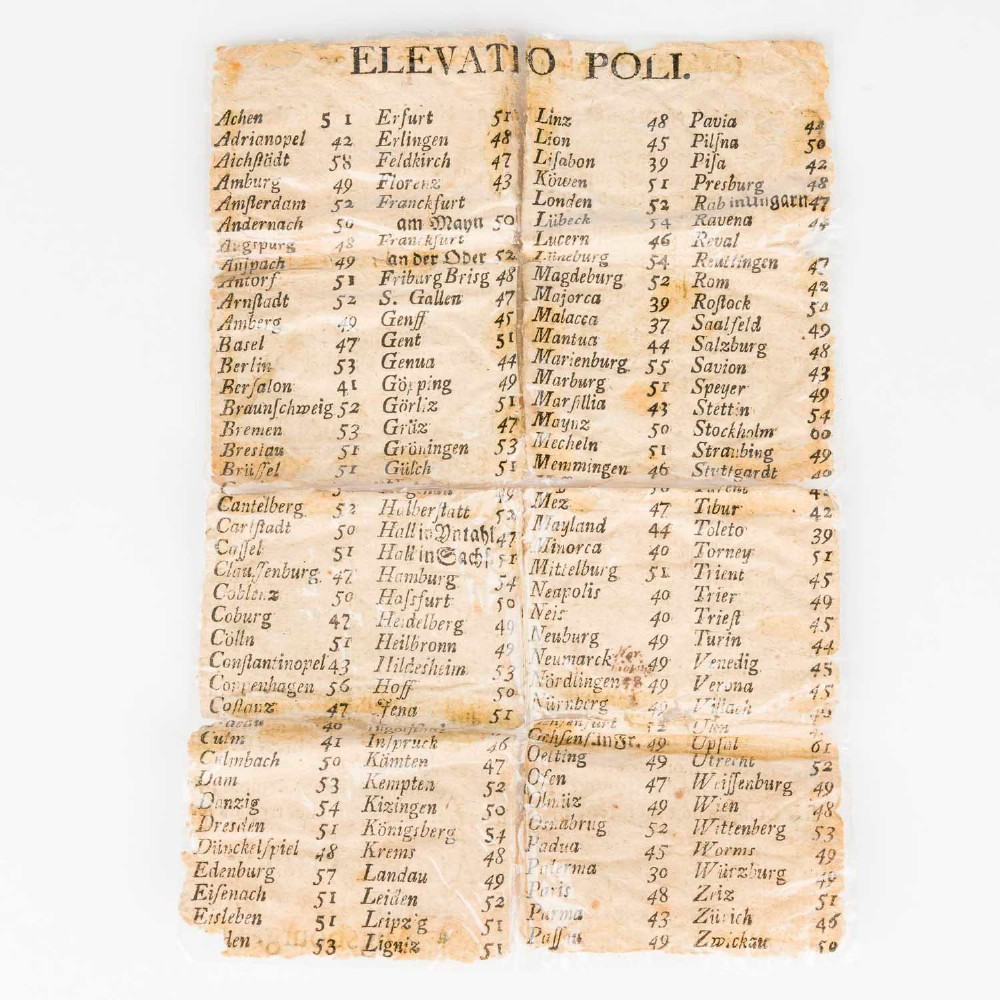 ELEVATIO POLI.
Achen 51
Adrianopel 42
Aichstädt 58
Amburg 49
Amsterdam 52
Andernach 50
Augspurg 48
Anspach 49
Antorf 51
Arnstadt 52
Amberg 49
Basel 47
Berlin 53
Bersalon 41
Braunschweig 52
Bremen 53
Breslau 51
Brüssel 51
Cantelberg 52
Carlstadt 50
Cassel 51
Claussenburg 47
Coblenz 50
Coburg 47
Cölln 51
Constantinopel 43
Coppenhagen 56
Costanz 47
Culm 41
Culmbach 50
Dam 53
Danzig 54
Dresden 51
Dünckelspiel 48
Edenburg 57
Eisenach 51
Eisleben 51
den 53
Erfurt 51
Erlingen 48
Feldkirch 47
Florenz 43
Franckfurt
am Mayn 50
Franckfurt
an der Oder 52
Friburg Brisg 48
S. Gallen 47
Genff 45
Gent 51
Genua 44
Göpping 49
Görliz 51
Gräz 47
Gröningen 53
Gülch 51
49
Halberstatt 52
Hall in Vntahl 47
Hall in Sachs. 51
Hamburg 54
Hassfurt 50
Heidelberg 49
Heilbronn 49
Hildesheim 53
Hoff 50
Jena 51
Inspruck 46
Kämten 47
Kempten 52
Kizingen 50
Königsberg 54
Krems 48
Landau 49
Leiden 52
Leipzig 51
Ligniz 51
Linz 48
Lion 45
Lisabon 39
Köwen 51
Londen 52
Lübeck 54
Lucern 46
Lüneburg 54
Magdeburg 52
Majorca 39
Malacca 37
Mantua 44
Marienburg 55
Marburg 51
Marsillia 43
Maynz 50
Mecheln 51
Memmingen 46
Mez 47
Mayland 44
Minorca 40
Mittelburg 51
Neapolis 40
Neis 40
Neuburg 49
Neumarck 49
Nördlingen 49
Nürnberg 49
Ochsenf. in Fr. 49
Oetting 49
Ofen 47
Olmüz 49
Osnabrug 52
Padua 45
Palerma 30
Paris 48
Parma 43
Passau 49
Pavia 44
Pilsna 50
Pisa 42
Presburg 48
Rab in Ungarn 47
Ravena 44
Reval
Reutlingen 47
Rom 42
Rostock 54
Saalfeld 49
Salzburg 48
Savion 43
Speyer 49
Stettin 54
Stockholm 60
Straubing 49
Stuttgardt 49
Tibur 42
Toleto 39
Torney 51
Trient 45
Trier 49
Triest 45
Turin 44
Venedig 45
Verona 45
Villach
Ulm
Upsal 61
Utrecht 52
Weissenburg 49
Wien 48
Wittenberg 53
Worms 49
Würzburg 49
Zeiz 51
Zürich 46
Zwickau 50